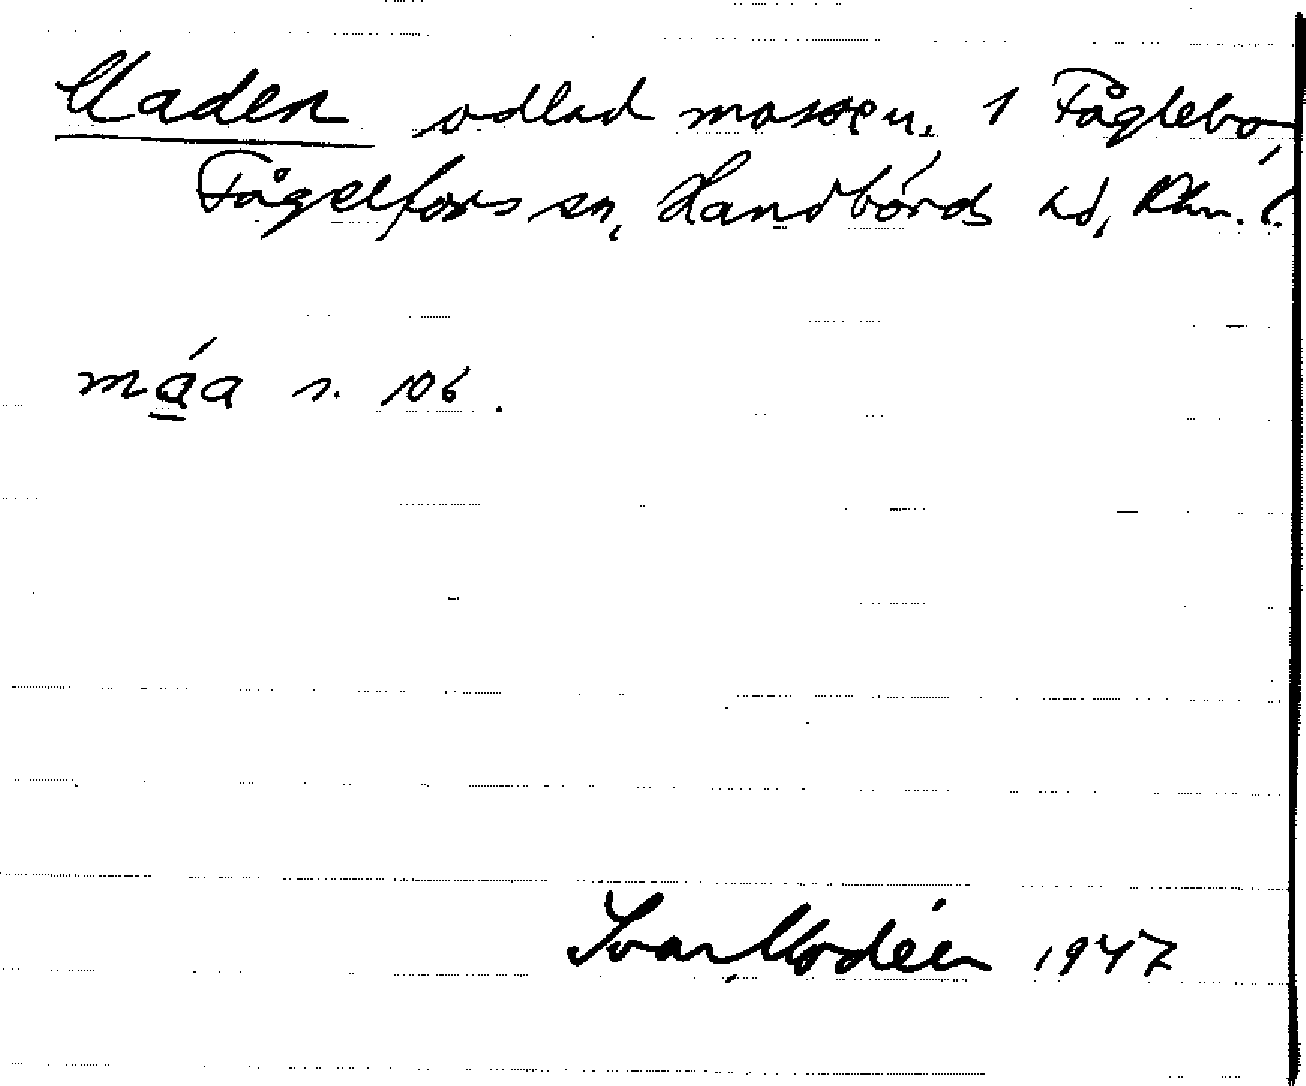 Maden odlad mosse, 1 Fåglebo,
Fågelfors sn, Handbörds hd, Klm. l.
máa s. 106.
Ivar Modéer 1947